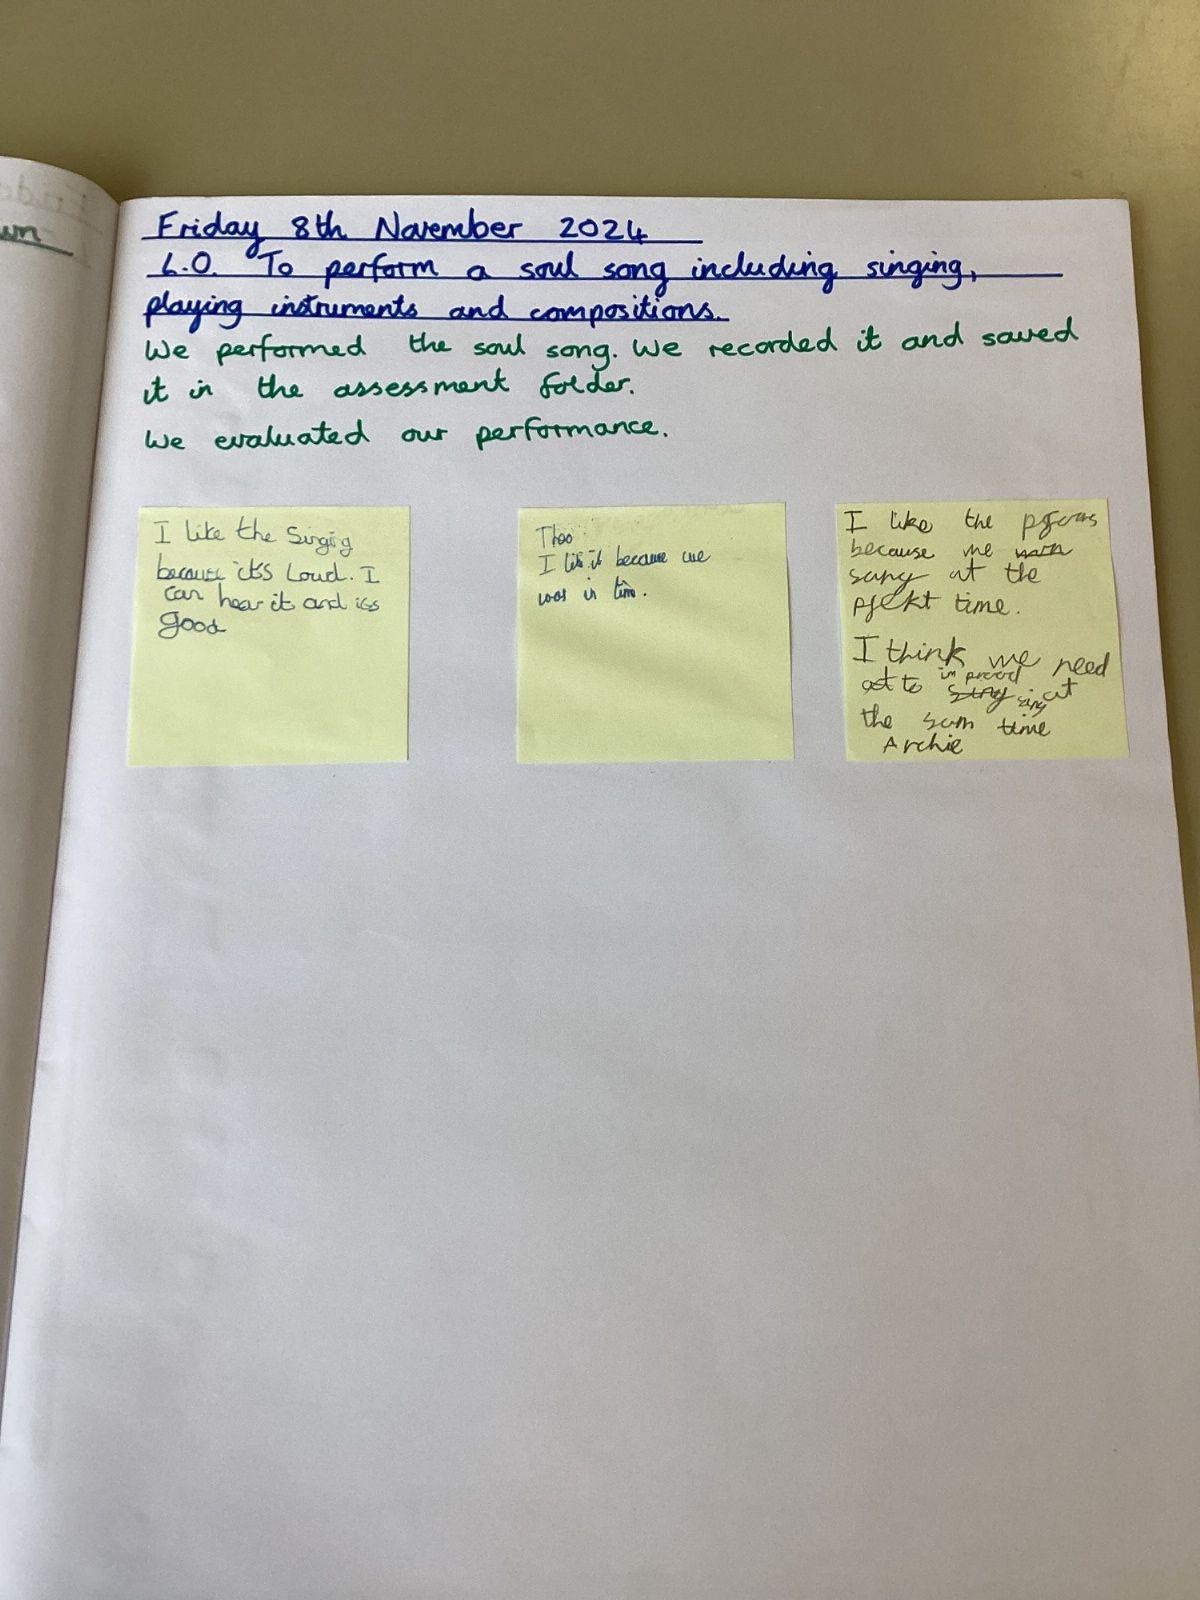 Friday 8th November 2024
L.O. To perform a soul song including singing,
playing instruments and compositions.
We performed the soul song. We recorded it and saved
it in the assessment folder.
We evaluated our performance.
I like the Singig
because its Loud. I
can hear it and its
good
I like it because we
was in tim.
I like the
because we
sang at the
pfekt time.
I think we need
to
sing at
the sam time
Archie